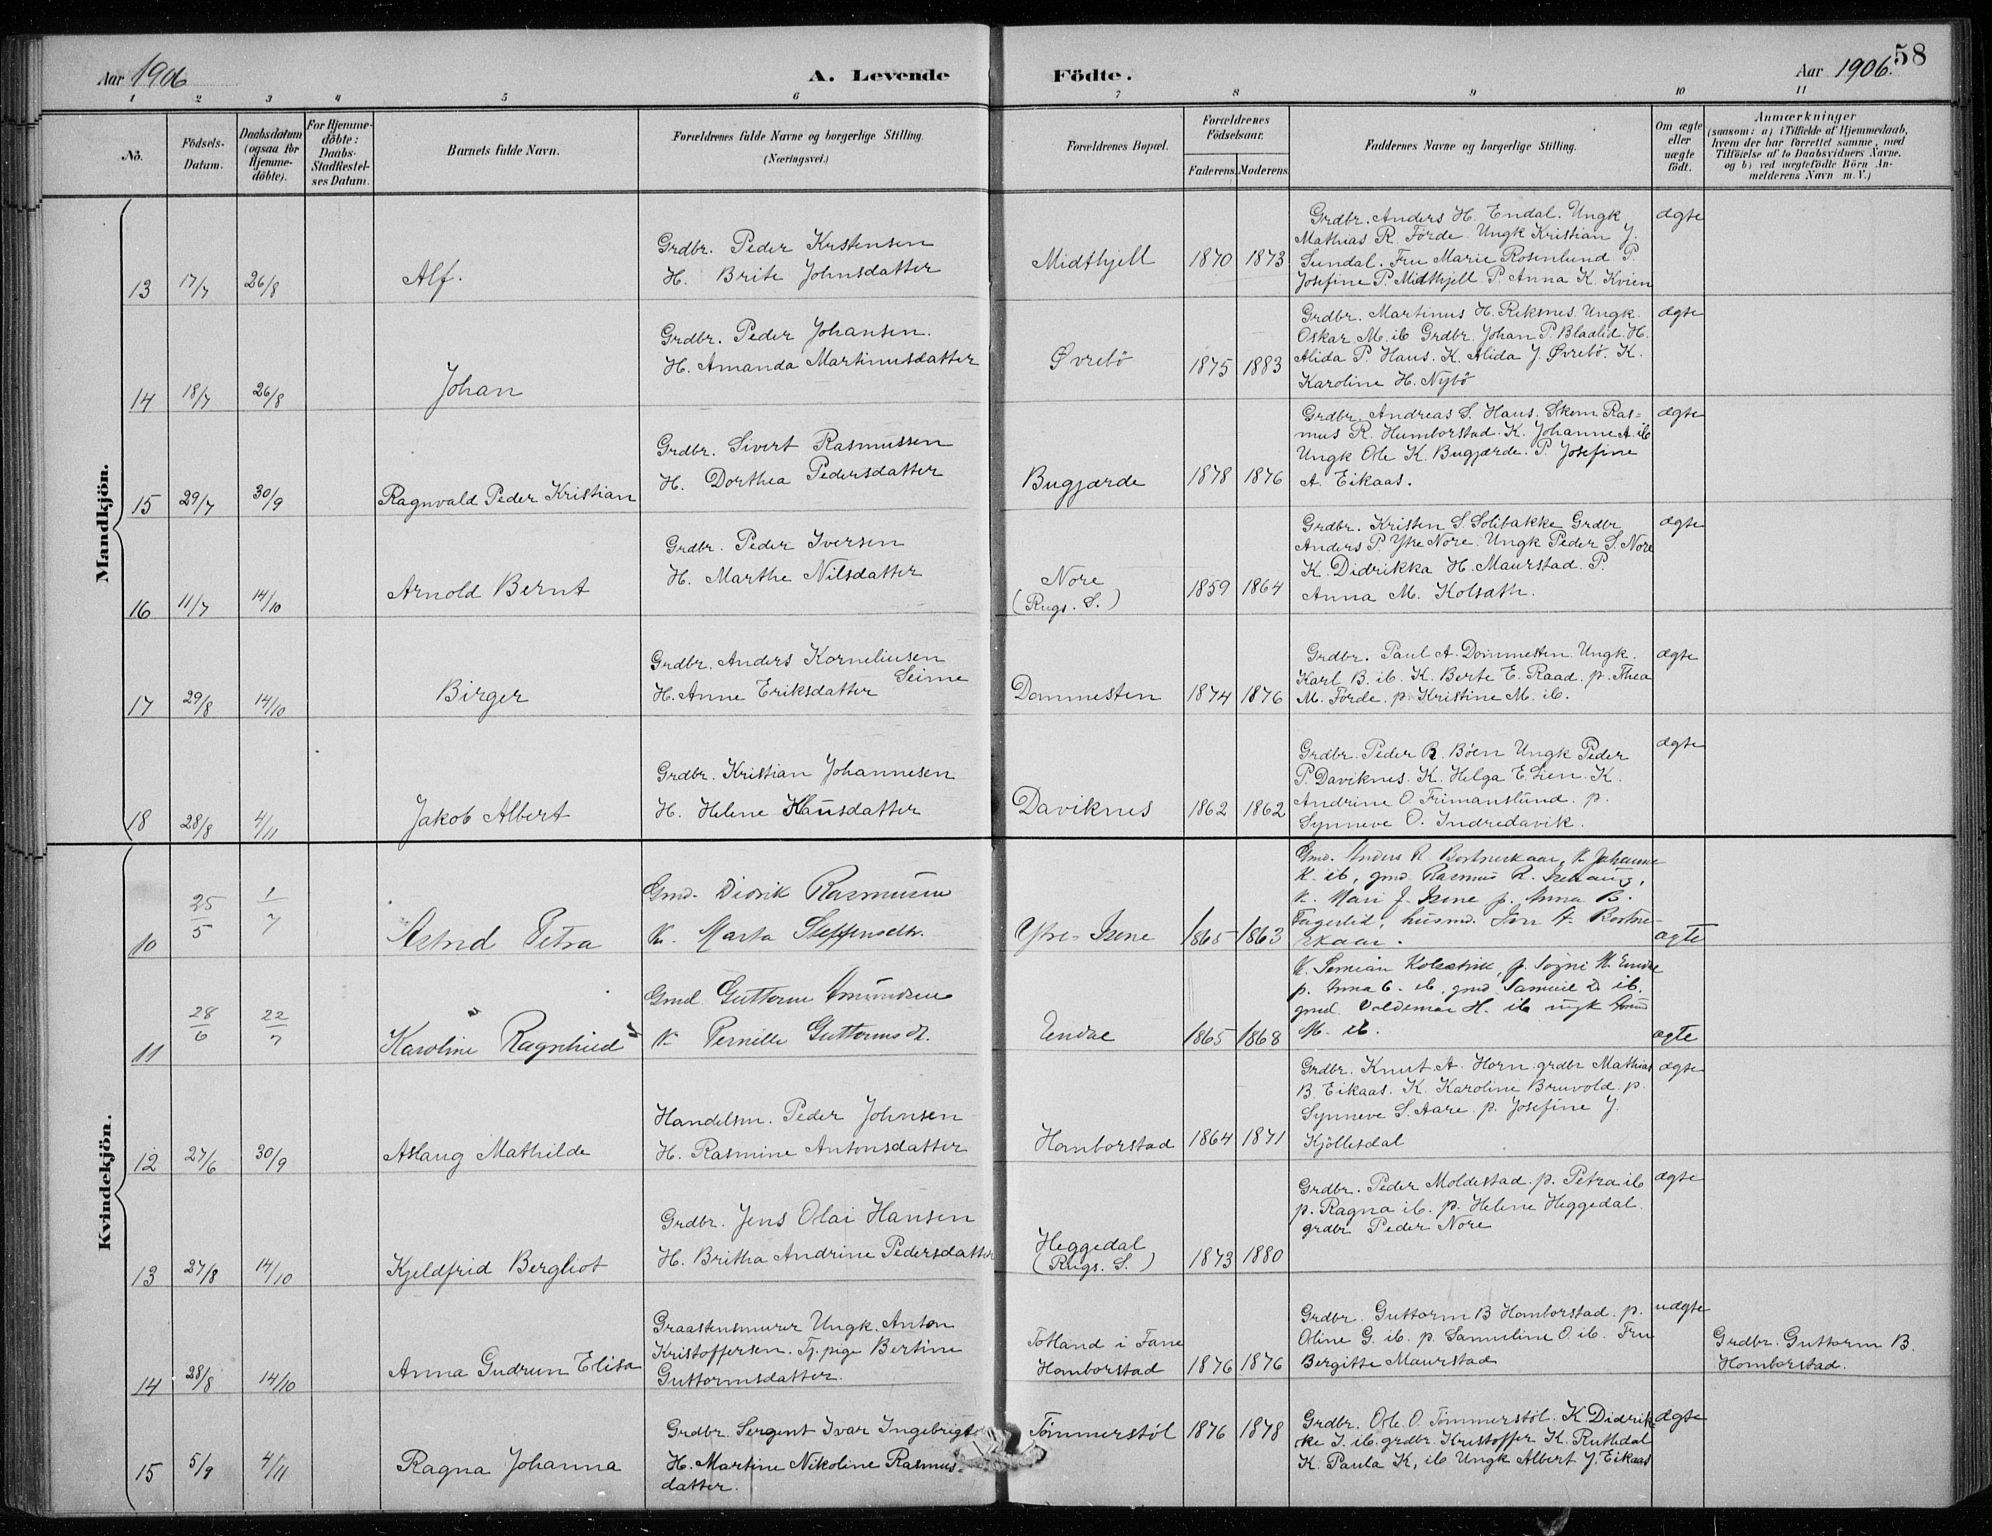 Aar 1906
A. Levende
Födte.
Aar 1906.
58
1 2 3 4 5 6 7 8 9 10 11
Nö.
Födsels-
Datum.
Daabsdatum
(ogsaa for
Hjemme-
döbte).
For Hjemme-
döbte:
Daabs-
Stadfæstel-
ses Datum.
Barnets fulde Navn.
Forældrenes fulde Navne og borgerlige Stilling.
(Næringsvei.)
Forældrenes Bopæl.
Forældrenes
Födselsaar.
Faderens. Moderens.
Faddernes Navne og borgerlige Stilling.
Om ægte
eller
uægte
födt.
Anmærkninger
(saasom: a) i Tilfælde af Hjemmedaab,
hvem der har forrettet samme, med
Tilföielse af to Daabsvidners Navne,
og b) ved uægtefödte Börn An-
melderens Navn m. V.)
Mandkjön.
13 17/7 26/8 Alf.
Grdbr. Peder Kristensen
H. Brite Johnsdatter
Midthjell 1870 1873
Grdbr. Anders H. Endal. Ungk
Mathias R. Förde. Ungk Kristian J.
Sundal. Fru Marie Rosenlund P
Josefine P. Midthjell P. Anna K. Kvien
ægte
14 18/7 26/8 Johan
Grdbr. Peder Johansen.
H. Amanda Martinusdatter
Øvrebö 1875 1883
Grdbr. Martinus H. Reksnes. Ungk.
Oskar M. ib Grdbr. Johan P. Bladlid. H.
Alida P. Haus. K. Alida J. Øvrebö. K.
Karoline H. Nybö
ægte
15 29/7 30/9 Ragnvald Peder Kristian
Grdbr. Sivert Rasmussen
H. Dorthea Pedersdatter
Bugjærde 1878 1876
Grdbr. Andreas S. Haus. Skom Ras=
mus R. Humborstad. K. Johanne A. ib
Ungk Ole K. Bugjærde. P. Josefine
A. Eikaas.
ægte
16 11/7 14/10 Arnold Bernt
Grdbr. Peder Iversen
H. Marthe Nilsdatter
Nore
(Rugs. S.) 1859 1864
Grdbr. Kristen S. Solibakke Grdbr
Anders P. Ytre Nore. Ungk Peder S. Nore
K. Didrikka H. Maurstad. P.
Anna M. Kolsæth.
ægte
17 29/8 14/10 Birger
Grdbr. Anders Korneliusen
Seime
H. Anne Eriksdatter
Dommesten 1874 1876
Grdbr. Paul A. Dommesten. Ungk.
Karl B. ib. K. Berte E. Raad. p. Thea
M. Förde. p. Kristine M. ib.
ægte
18 28/8 4/11 Jakob Albert
Grdbr. Kristian Johannesen
H. Helene Klausdatter
Daviknes 1862 1862
Grdbr. Peder R. Böen Ungk Peder
P. Daviknes. K. Helga E. Lien. K.
Andrine O. Frimanslund. p.
Synneve O. Indredavik.
ægte
Kvindekjön.
10 25/5 1/7 Astrid Petra
Gmd. Didrik Rasmussen
K. Marta Steffensdtr.
Ytre-Isene 1865 1863
Gmd. Anders R Bortneskaar, K Johanne
K. ib, gmd. Rasmus R.
K. Mari J. Isene p. Anna B.
Fagerlid, husmd. Jon A. Bortne-
skaar.
ægte
11 28/6 22/7 Karoline Ragnhild
Gmd Guttorm Amundsen
K. Pernille Guttormsdt.
Endal 1865 1868
p. Anna C. ib. gmd Samuel D. ib.
gmd. Valdemar H. ib ungk
M. ib.
ægte
12 27/6 30/9 Aslaug Mathilde
Handelsm. Peder Johnsen
H. Rasmine Antonsdatter
Homborstad 1864 1871
Grdbr. Knut A. Horn. grdbr Mathias
B. Eikaas. K. Karoline Bruvold. p.
Synneve S. Aare. p. Josefine J.
Kjöllesdal
ægte
13 27/8 14/10 Kjeldfrid Bergliot
Grdbr. Jens Olai Hansen
H. Britha Andrine Pedersdatter
Heggedal
(Rugs. S.) 1873 1880
Grdbr. Peder Moldestad. p. Petra ib
p. Ragna ib. p. Helene Heggedal.
grdbr Peder Nore
ægte
14 28/8 14/10 Anna Gudrun Elisa
Graastensmurer Ungk. Anton
Kristoffersen. Tj. pige Bertine
Guttormsdatter.
Totland i Fane
Homborstad 1876 1876
Grdbr. Guttorm B Homborstad. p.
Oline G. ib. p. Samuline O. ib. Fru
Bergitte Maurstad
uægte
Grdbr. Guttorm B.
Homborstad.
15 5/9 4/11 Ragna Johanna
Grdbr. Sergent Ivar Ingebrigts
H. Martine Nikoline Rasmus-
datter.
Tömmerstöl 1876 1878
Grdbr. Ole O. Tömmerstöl. K. Didrik-
ke I. ib. grdbr. Kristoffer K. Rutledal
K. Paula K, ib Ungk Albert J. Eikaas
ægte